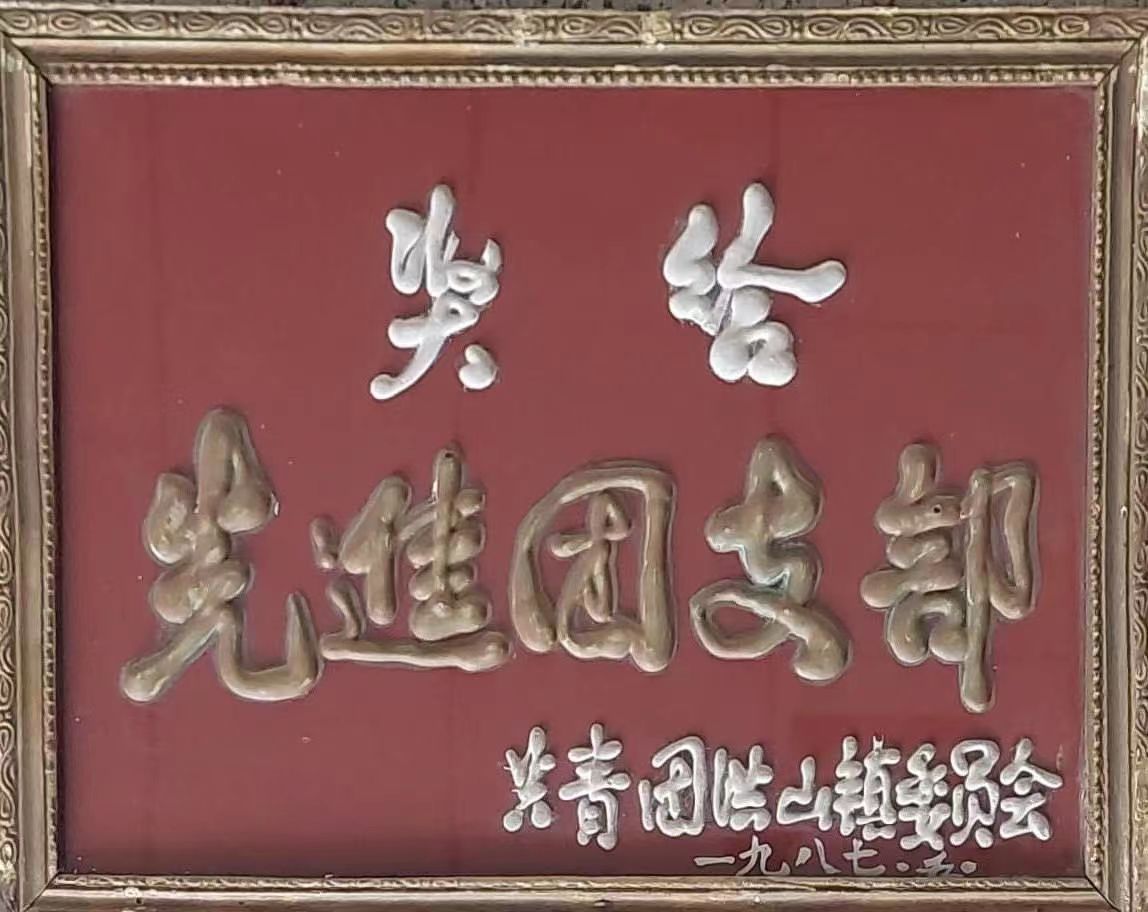 奖给
先進团支部
共青团洪山镇委员会
一九八七.五.